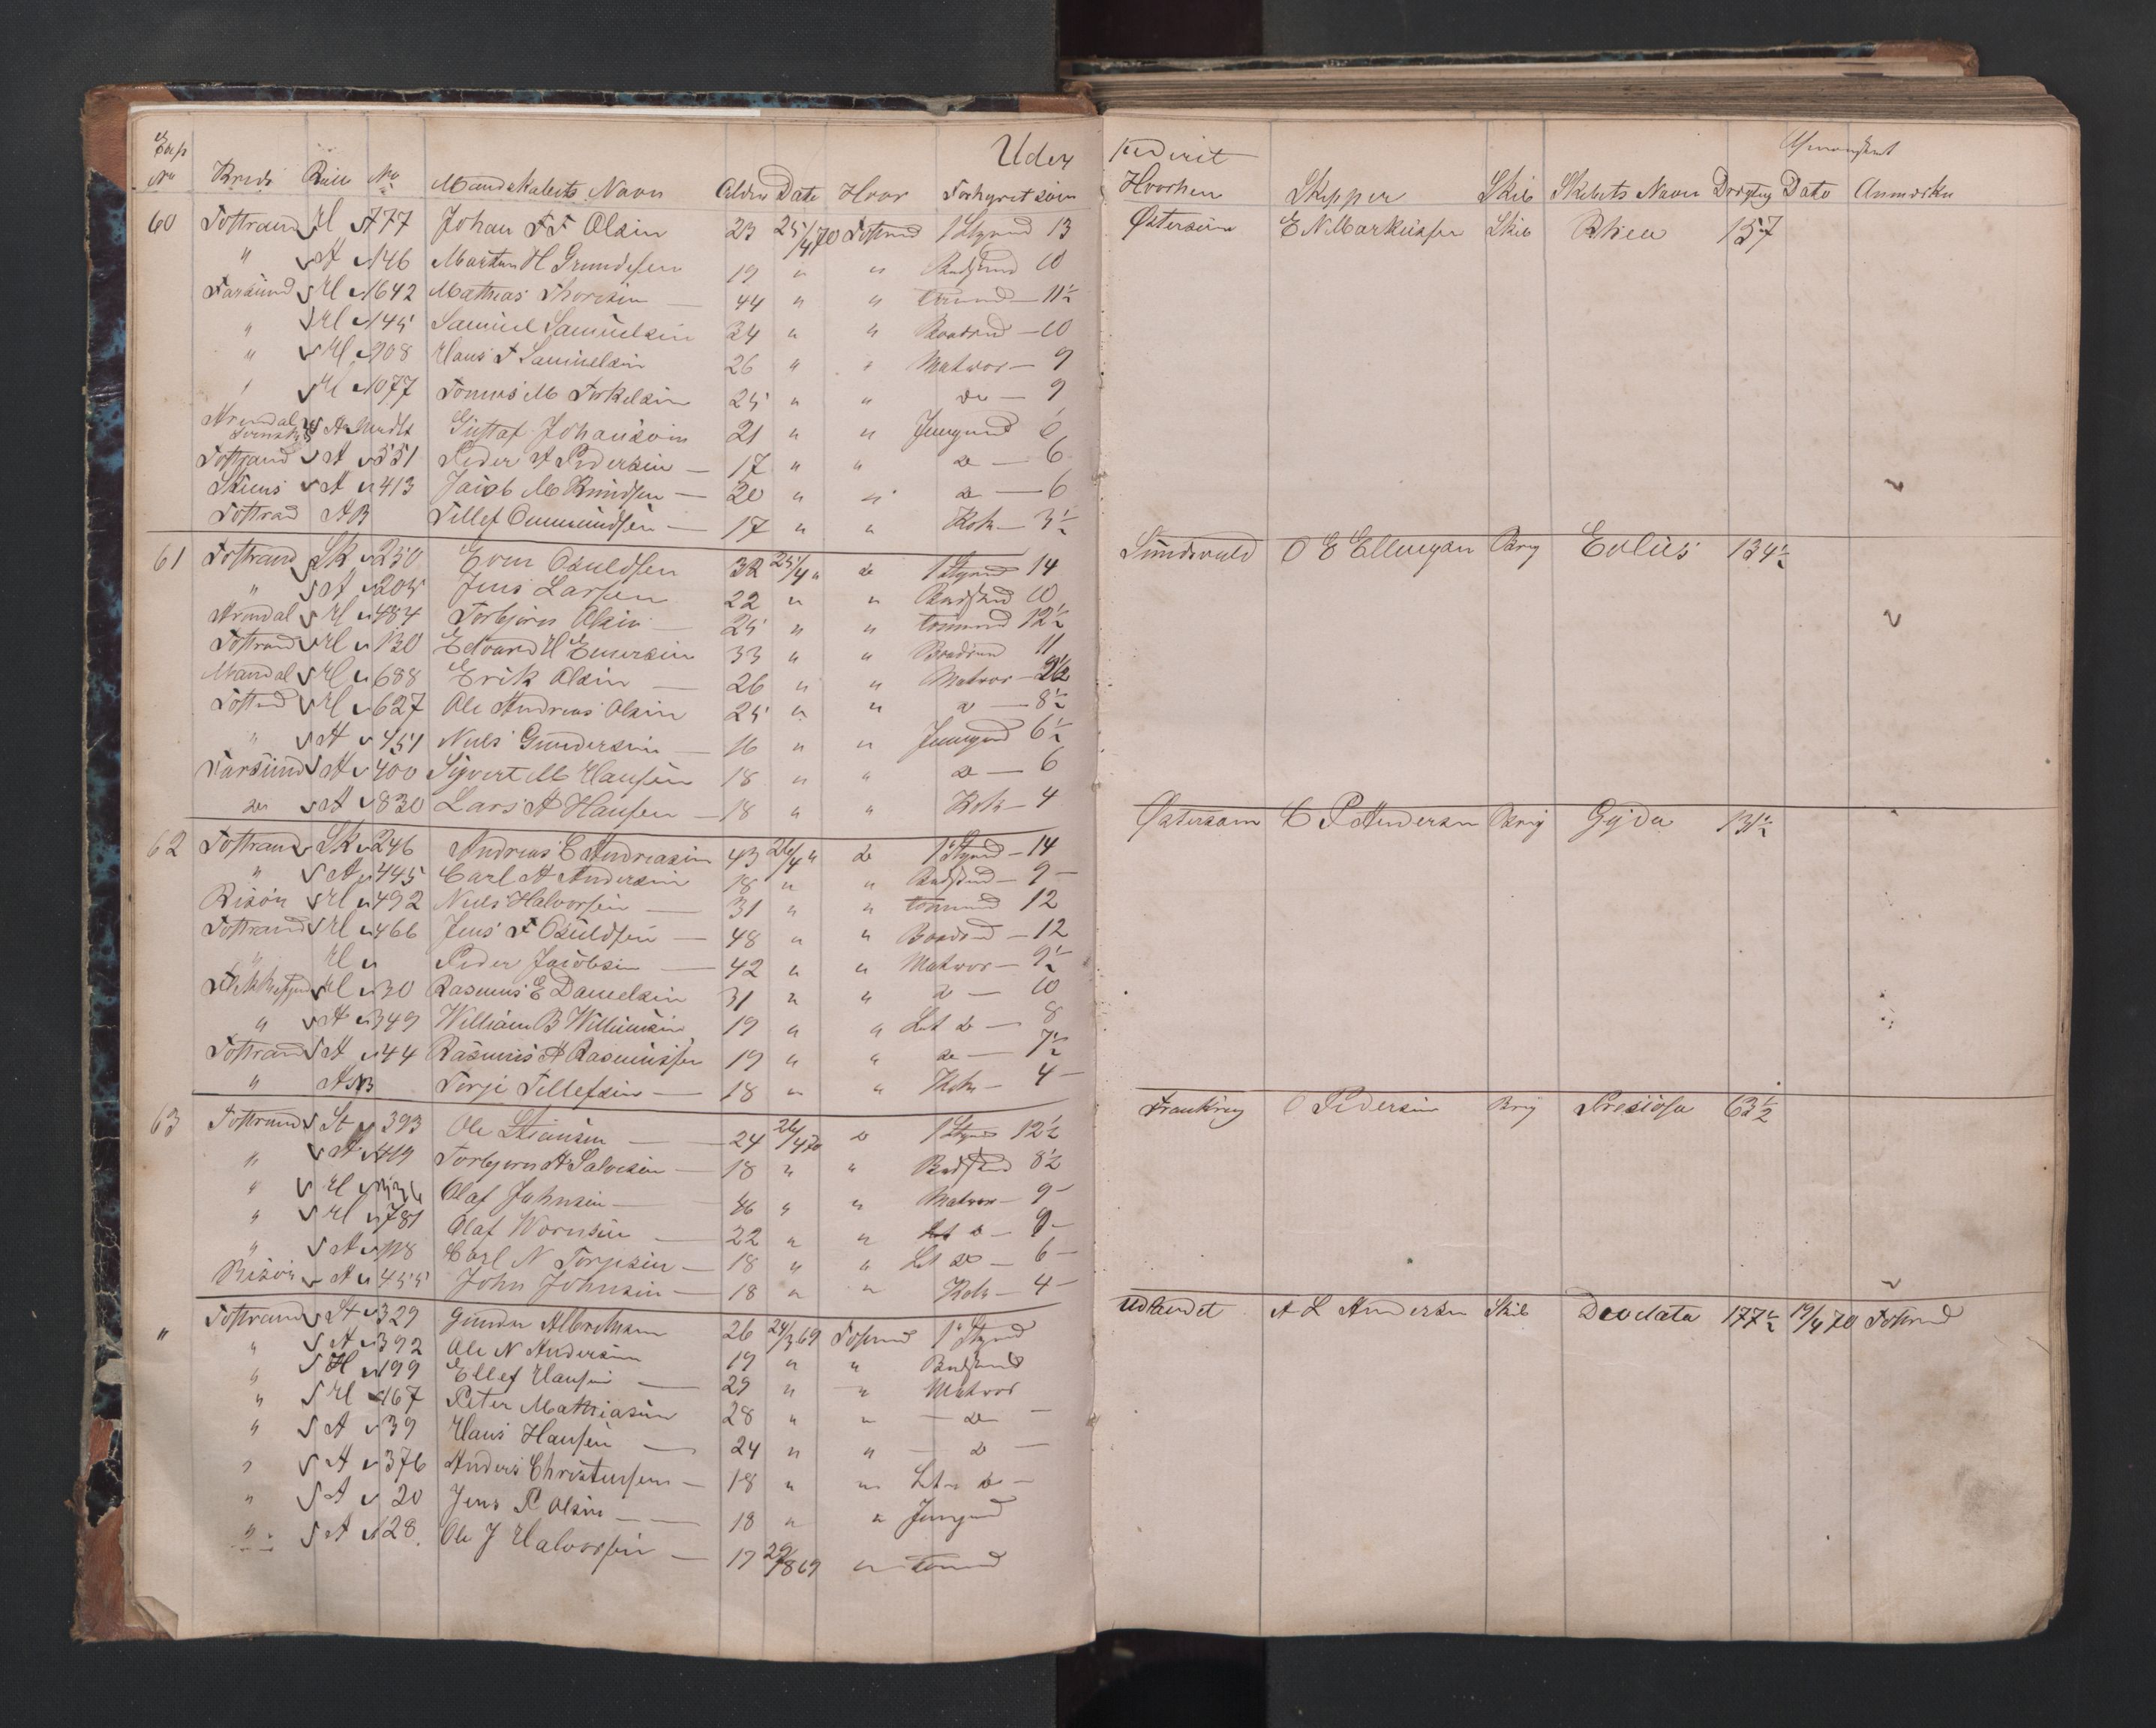 Exp Uder
No Kreds Rulle No Mandskabets Navn Alder Date Hvor Forhyret som
60 Tostrand H 177 Johan F F Olsen 23 25/4 70 Tostrand 1 Styrmd 13
" A 146 Morten H Gundersen 19 " " Badstmd 10
Farsund H 1642 Mathias Thorsen — 44 " " tømmd — 11½
" H 145 Samuel Samuelsen 34 " " Baadsmd — 10
" H 108 Hans T Samuelsen 26 " " Matros — 9
" H 1077 Tønnes M Torkelsen 25 " " do — 9
Arendal Svensk A Gustaf Johanson 21 " " Jungmd 6
Tostrand A 551 Peder A Pedersen — 17 " " do — 6
Skiens A 413 Jacob M Knudsen — 20 " " do — 6
Tostrad AB Tellef Ommundsen — 17 " " Kok — 3½
61 Tostrand SK 250 Even Osuldsen 32 25/4 " do 1 Styrmd 14
" A 205 Jens Larsen 22 " " Badstmd 10
Arendal H 484 Torbjørn Olsen 25 " " tømmd 12½
Tostrand H 130 Edvard H Evensen 33 " " Baadsmd 11
Mandal H 688 Erik Olsen — 26 " " Matros —
Tostrd H 627 Ole Andreas Olsen 25 " " do — 8½
" A 451 Niels Gundersen — 16 " " Jungmd 6½
Farsund A 400 Sigvert M Hansen 18 " " do — 6
do A 830 Lars A Hansen — 18 " " Kok — 4
62 Tostrand SK 246 Andreas C Andreasen 43 26/4 " do 1 Styrmd — 14
" A 445 Carl A Andersen 18 " " Badstmd — 9 —
Risør H 492 Niels Halvorsen — 31 " " tømmd 12
Tostrand H 466 Jens F Osuldsen — 48 " " Baadsmd — 12
" H Peder Jacobsen — 42 " " Matros — 9½
Flekkefjord H 30 Rasmus E Danielsen 31 " " do — 10
" A 349 William B Williamsen 19 " " Let do — 8
Tostrand A 44 Rasmus A Rasmussen 19 " " do — 7½
" AB Torje Tellefsen — 18 " " Kok — 4 —
63 Tostrand St 393 Ole Stiansen — 24 26/4 70 do 1 Styrmd 12½
" A 419 Torbjørn A Salvesen — 18 " " Badstmd 8½
" H Olaf Johnsen — 46 " " Matros — 9 —
" H 781 Olaf Wormsen — 22 " " Let do — 9 —
" A 118 Carl N Torjesen — 18 " " Let do — 6 —
Risør A 455 John Johnsen — 18 " " Kok — 4 —
" Tostrand St 329 Gunder Albretsen 26 24/3 69 Tostrand 1 Styrmd
" A 392 Ole N Andersen 19 " " Badstmd
" H 199 Ellef Hansen — 29 " " Matros
" H 167 Peter Mathiasen 28 " " — do —
" A 39 Hans Hansen — 24 " " — do —
" A 376 Anders Christensen — 18 " " Let do —
" A 20 Jens P Olsen — 18 " " Jungmd
" A 128 Ole J Halvorsen — 17 29/8 69 " tømmd
rederet Afmønstret
Hvorhen Skipper Skib Skibets Navn Drægtig Dato Anmærkn
Østersøen E N Markussen Skib Rhea 157
Sundsvald O E Ellingsen Brig Eolus 134½
Østersøen C P Andersen Brig Gyda 131½
Frankrig O Pedersen Brig Presiosa 63½
Udlandet A L Andersen Skib Deodata 177½ 19/4 70 Tostrand